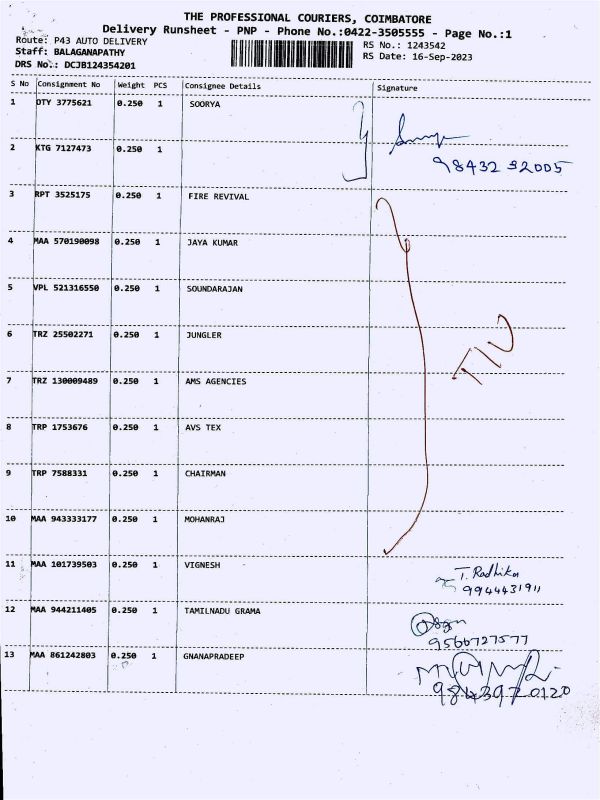 THE PROFESSIONAL COURIERS, COIMBATORE
Delivery Runsheet - PNP - Phone No.:0422-3505555 - Page No.:1
Route: P43 AUTO DELIVERY
RS No.: 1243542
Staff: BALAGANAPATHY
RS Date: 16-Sep-2023
DRS No.: DCJB124354201
S No Consignment No Weight PCS Consignee Details Signature
1 OTY 3775621 0.250 1 SOORYA
2 KTG 7127473 0.250 1
98432 92005
3 RPT 3525175 0.250 1 FIRE REVIVAL
4 MAA 570190098 0.250 1 JAYA KUMAR
5 VPL 521316550 0.250 1 SOUNDARAJAN
6 TRZ 25502271 0.250 1 JUNGLER
7 TRZ 130009489 0.250 1 AMS AGENCIES
8 TRP 1753676 0.250 1 AVS TEX
9 TRP 7588331 0.250 1 CHAIRMAN
10 MAA 943333177 0.250 1 MOHANRAJ
11 MAA 101739503 0.250 1 VIGNESH T. Radhika
9944431911
12 MAA 944211405 0.250 1 TAMILNADU GRAMA
9566727577
13 MAA 861242803 0.250 1 GNANAPRADEEP
9843970120